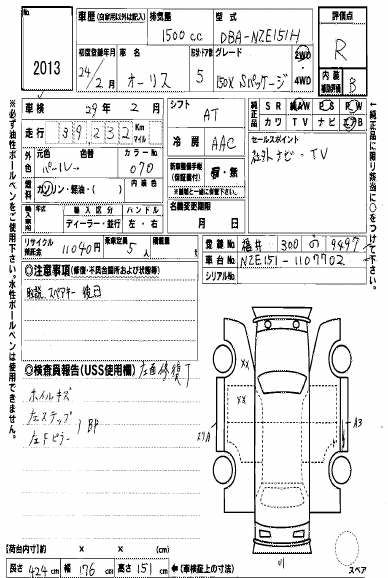 2013
車歴 (自家用以外は記入)
排気量 1500 cc
型式 DBA-NZE151H
初度登録年月 24年 2月
車名 オーリス
形状・ドア数 5
グレード 150X Sパッケージ
2WD 4WD
評価点 R
内装 補助評価 B
車検 29年 2月
シフト AT
走行 39232 Km マイル
冷房 AAC
純正品 SR AW PS PW
カワ TV ナビ エアB
元色 パール
色替
カラーNo 070
燃料 ガソリン・軽油・( )
内装色
新車整備手帳 (保証書付) 有・無
セールスポイント
社外ナビ・TV
輸入車
年式
輸入区分 ディーラー・並行
ハンドル 左・右
名義変更期限 月 日
リサイクル預託金 11040円
乗車定員 5人
積載量
登録No 福井 300 の 9497
車台No NZE151-1107702
シリアルNo
※必ず油性ボールペンをご使用下さい。水性ボールペンは使用できません。
純正品に限り該当に○をつけて下さい。
◎注意事項 (修復・不具合箇所および状態等)
取説 スペアキー 後日
◎検査員報告(USS使用欄) 左面修復了
ホイルキズ
左ステップ
左Fピラー } BP
XX
XX
A3
U1
【荷台内寸】約 × × (cm)
長さ 424 cm 幅 176 cm 高さ 151 cm ←(車検証上の寸法)
スペア